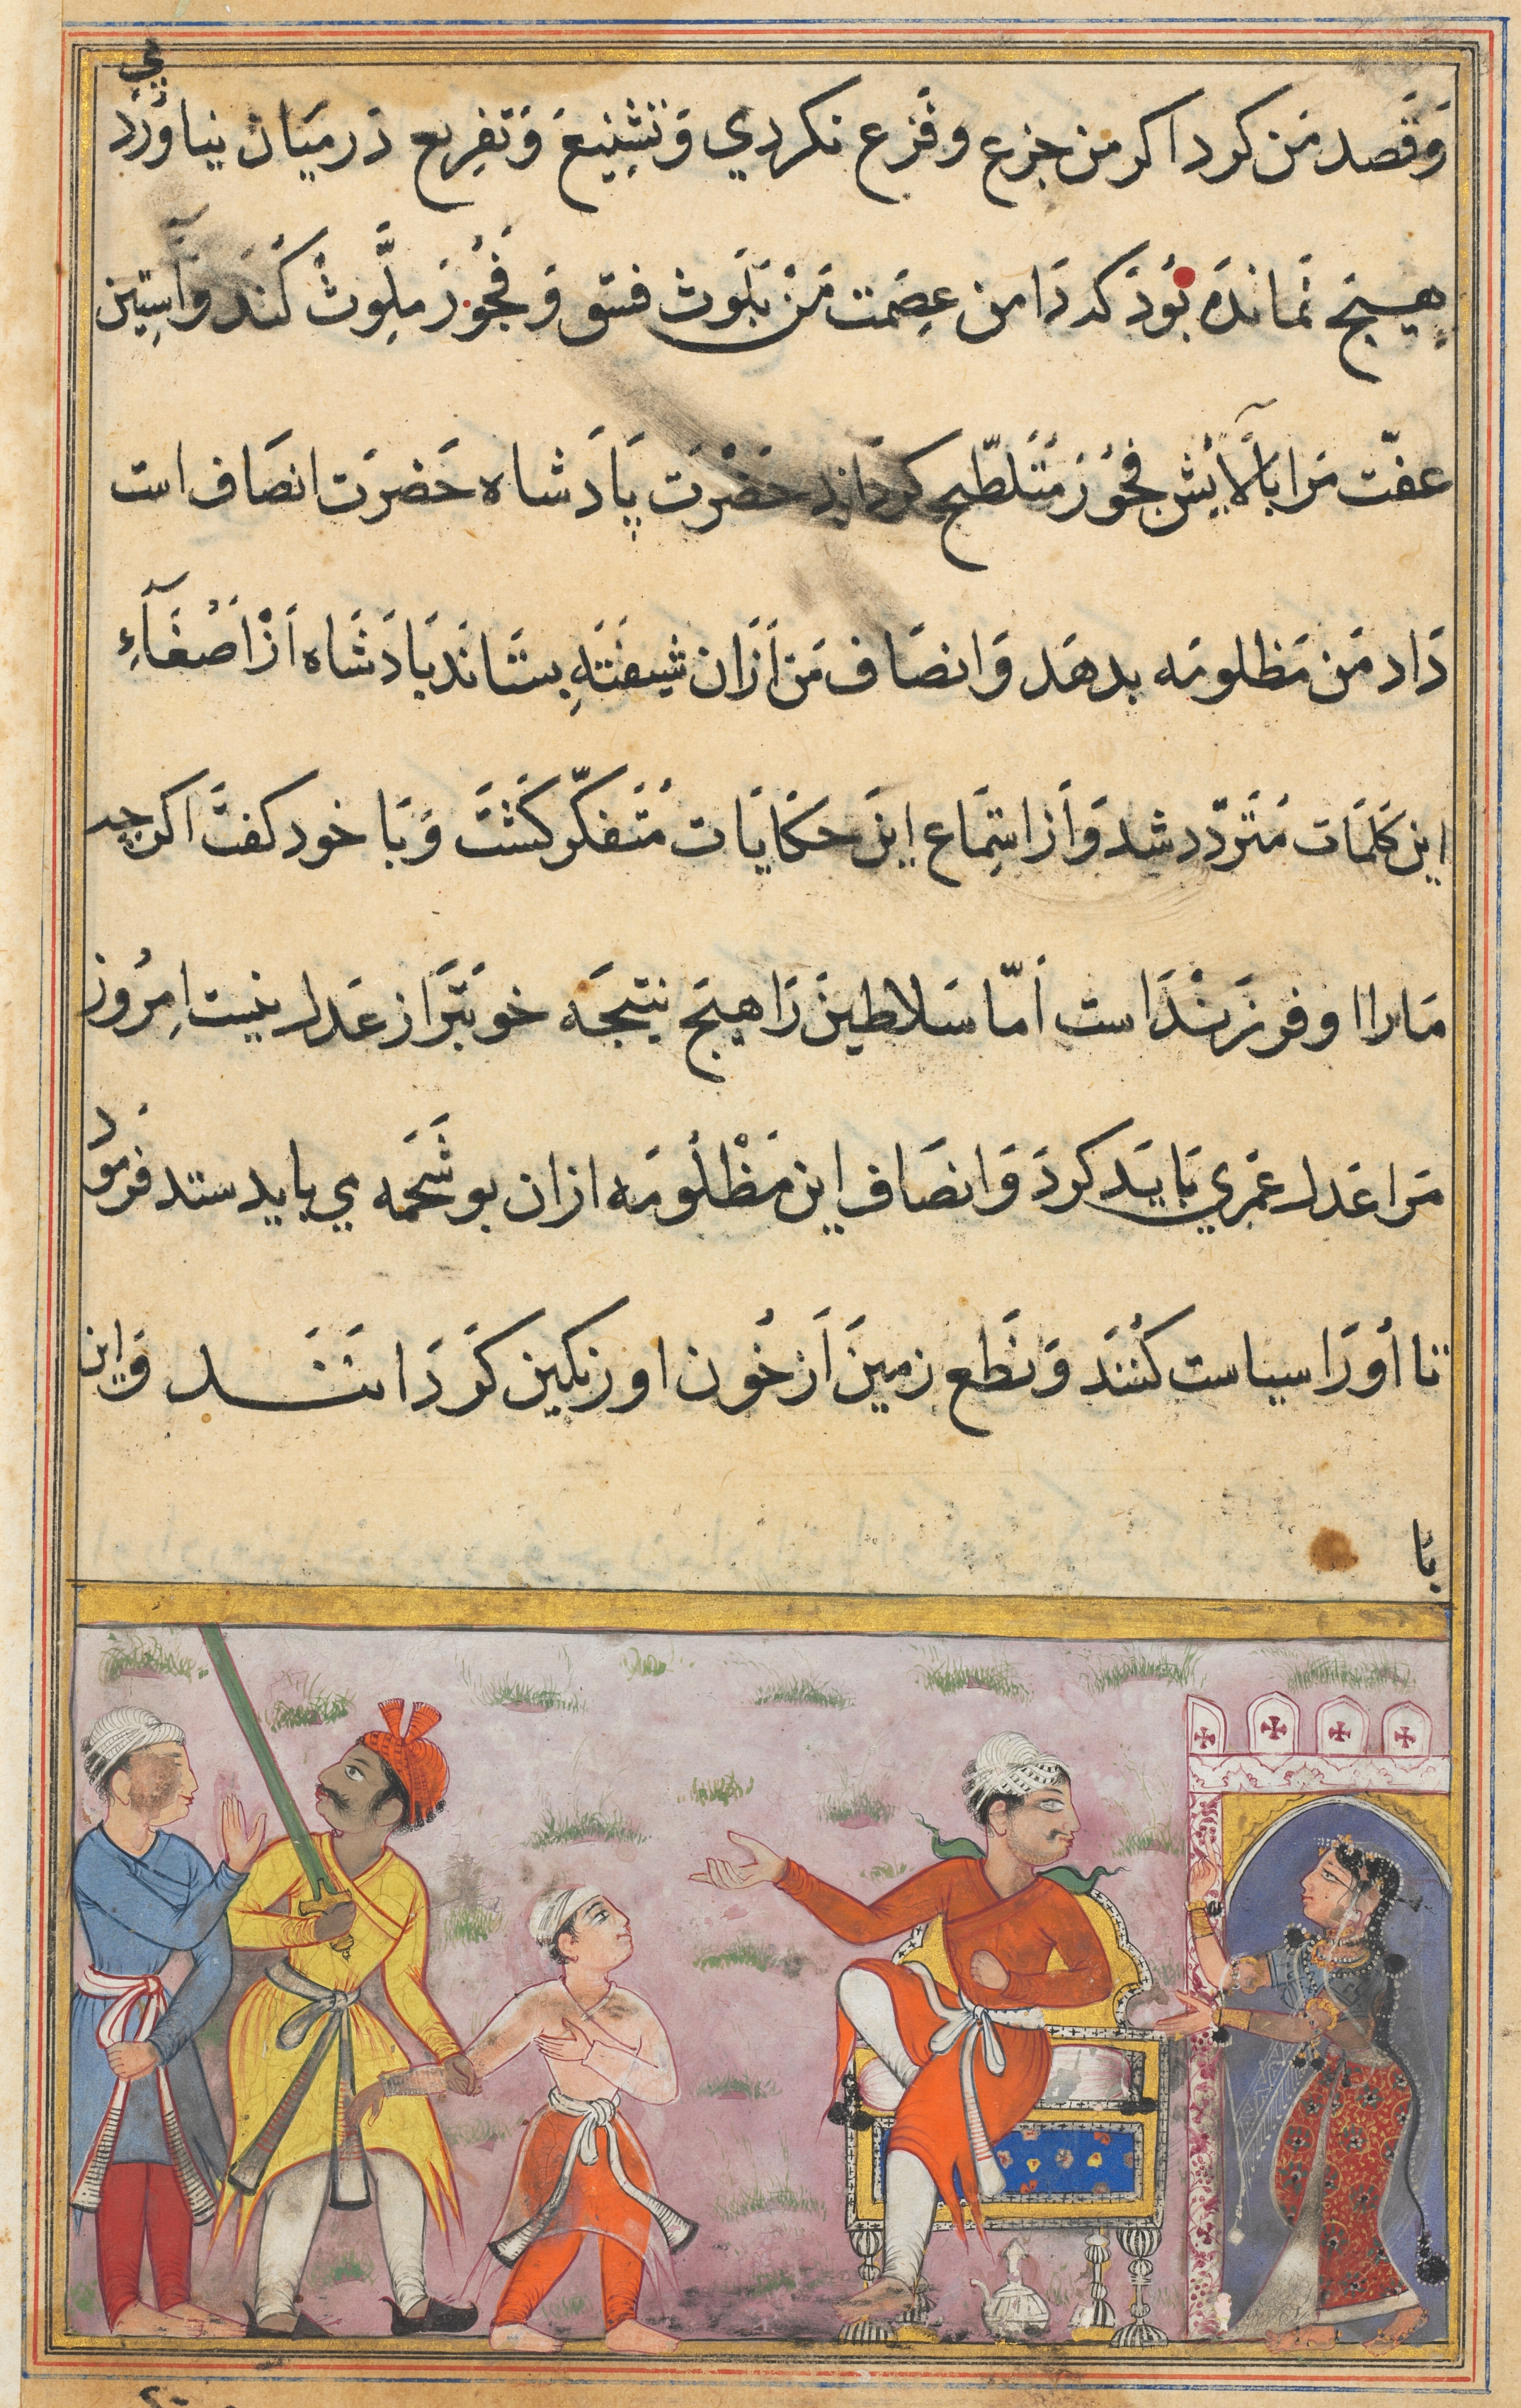 وَقَصد مَن کرد اکر من جزع و فَزع نکردي وَ تَشِنیعَ وَ تَفِریع دَرمیَان نیاوُرَدَ
مي
هیبچ نَماندَه بُودَ که دَامن عِصَمت مَنْ بَلَوث فسق وَ فُجُوْر مُلَّوِث کُنَد وَ آسِتِین
عفّت مَرا بَآلَایش فجُوْر مُتَلَطّخ کردَاند حَضْرَت پَادَشاه حَضرَت انصَاف است
دَاد مَن مَظلومَه بدهَد وَ انصَاف مَن اَزَان شیفتَهِ بستَانَد بَادَشَاه اَزْ اَصْغَآءِ
این کَلمَات مُتَرَدّد شد وَ اَز استِمَاع اینَ حکَایَات مُتَفَکّر کَشْتَ وَ بَا خود کفتَ اکرچه
مَارا او فرزَنْدَ است اَمّا سَلاطینْ رَا هیچَ نیتجَه خوبتَرَ از عَدل نیست اِمرُوز
مَرا عَدل عمَري بَایَد کردَ وَ انصَاف این مَظْلُومَه ازان بو شَحمَه ي باید ستد فرموُد
تا اُورَا سیاست کُنَنَد وَ نَطع زمینَ اَز خُون او رنکین کَردَانَنَد وَاین
بَا